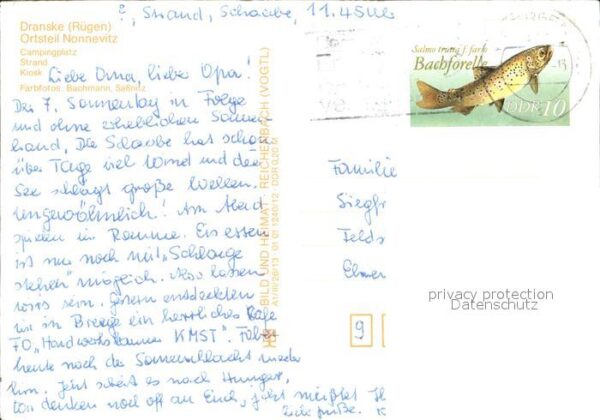 ?, Strand, Schaabe, 11.45 Uhr
Dranske (Rügen)
Ortsteil Nonnevitz
Campingplatz
Strand
Kiosk
Farbfotos: Bachmann, Saßnitz
Liebe Oma, liebe Opa!
Der 7. Sonnentag in Folge
und ohne erheblichen Sonnen
brand. Die Schaabe hat schon
über Tage viel Wind und die
See schlägt große Wellen.
Ungewöhnlich! Am Abend
spielen wir Romme. Ein essen
ist nur noch mit "Schlange
stehen" möglich. Also lassen
wirs sein. Gestern entdeckten
wir in Breege ein herrliches
FO "Handwerkskammer KMST".
heute noch der Sonnenschlacht wieder
hin. Jetzt scheint es nach Hunger,
denken noch oft an Euch, jetzt
Liebe Grüße.
BILD UND HEIMAT · REICHENBACH (VOGTL)
A1/III/26/13 01 01 1240/12 DDR 0,20 M
Salmo trutta f. fario
Bachforelle
DDR 10
Familie
Siegfr
Felds
9
privacy protection
Datenschutz